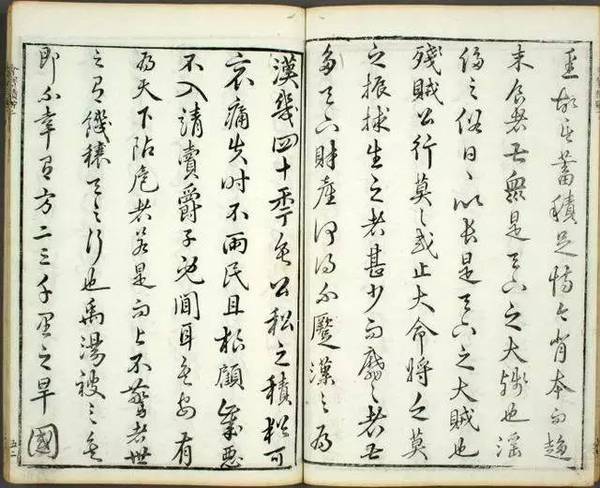 至故其蓄積足恃今背本而趨
末食者甚衆是天下之大殘也淫
侈之俗日日以長是天下之大賊也
殘賊公行莫之或止大命將泛莫
之振捄生之者甚少而靡之者甚
多天下財產何得不蹷漢之為
漢幾四十年矣公私之積猶可
哀痛失时不雨民且狼顧歲惡
不入請賣爵子既聞耳矣安有
為天下阽危者若是而上不驚者世
之有饑穰天之行也禹湯被之矣
即不幸有方二三千里之旱國